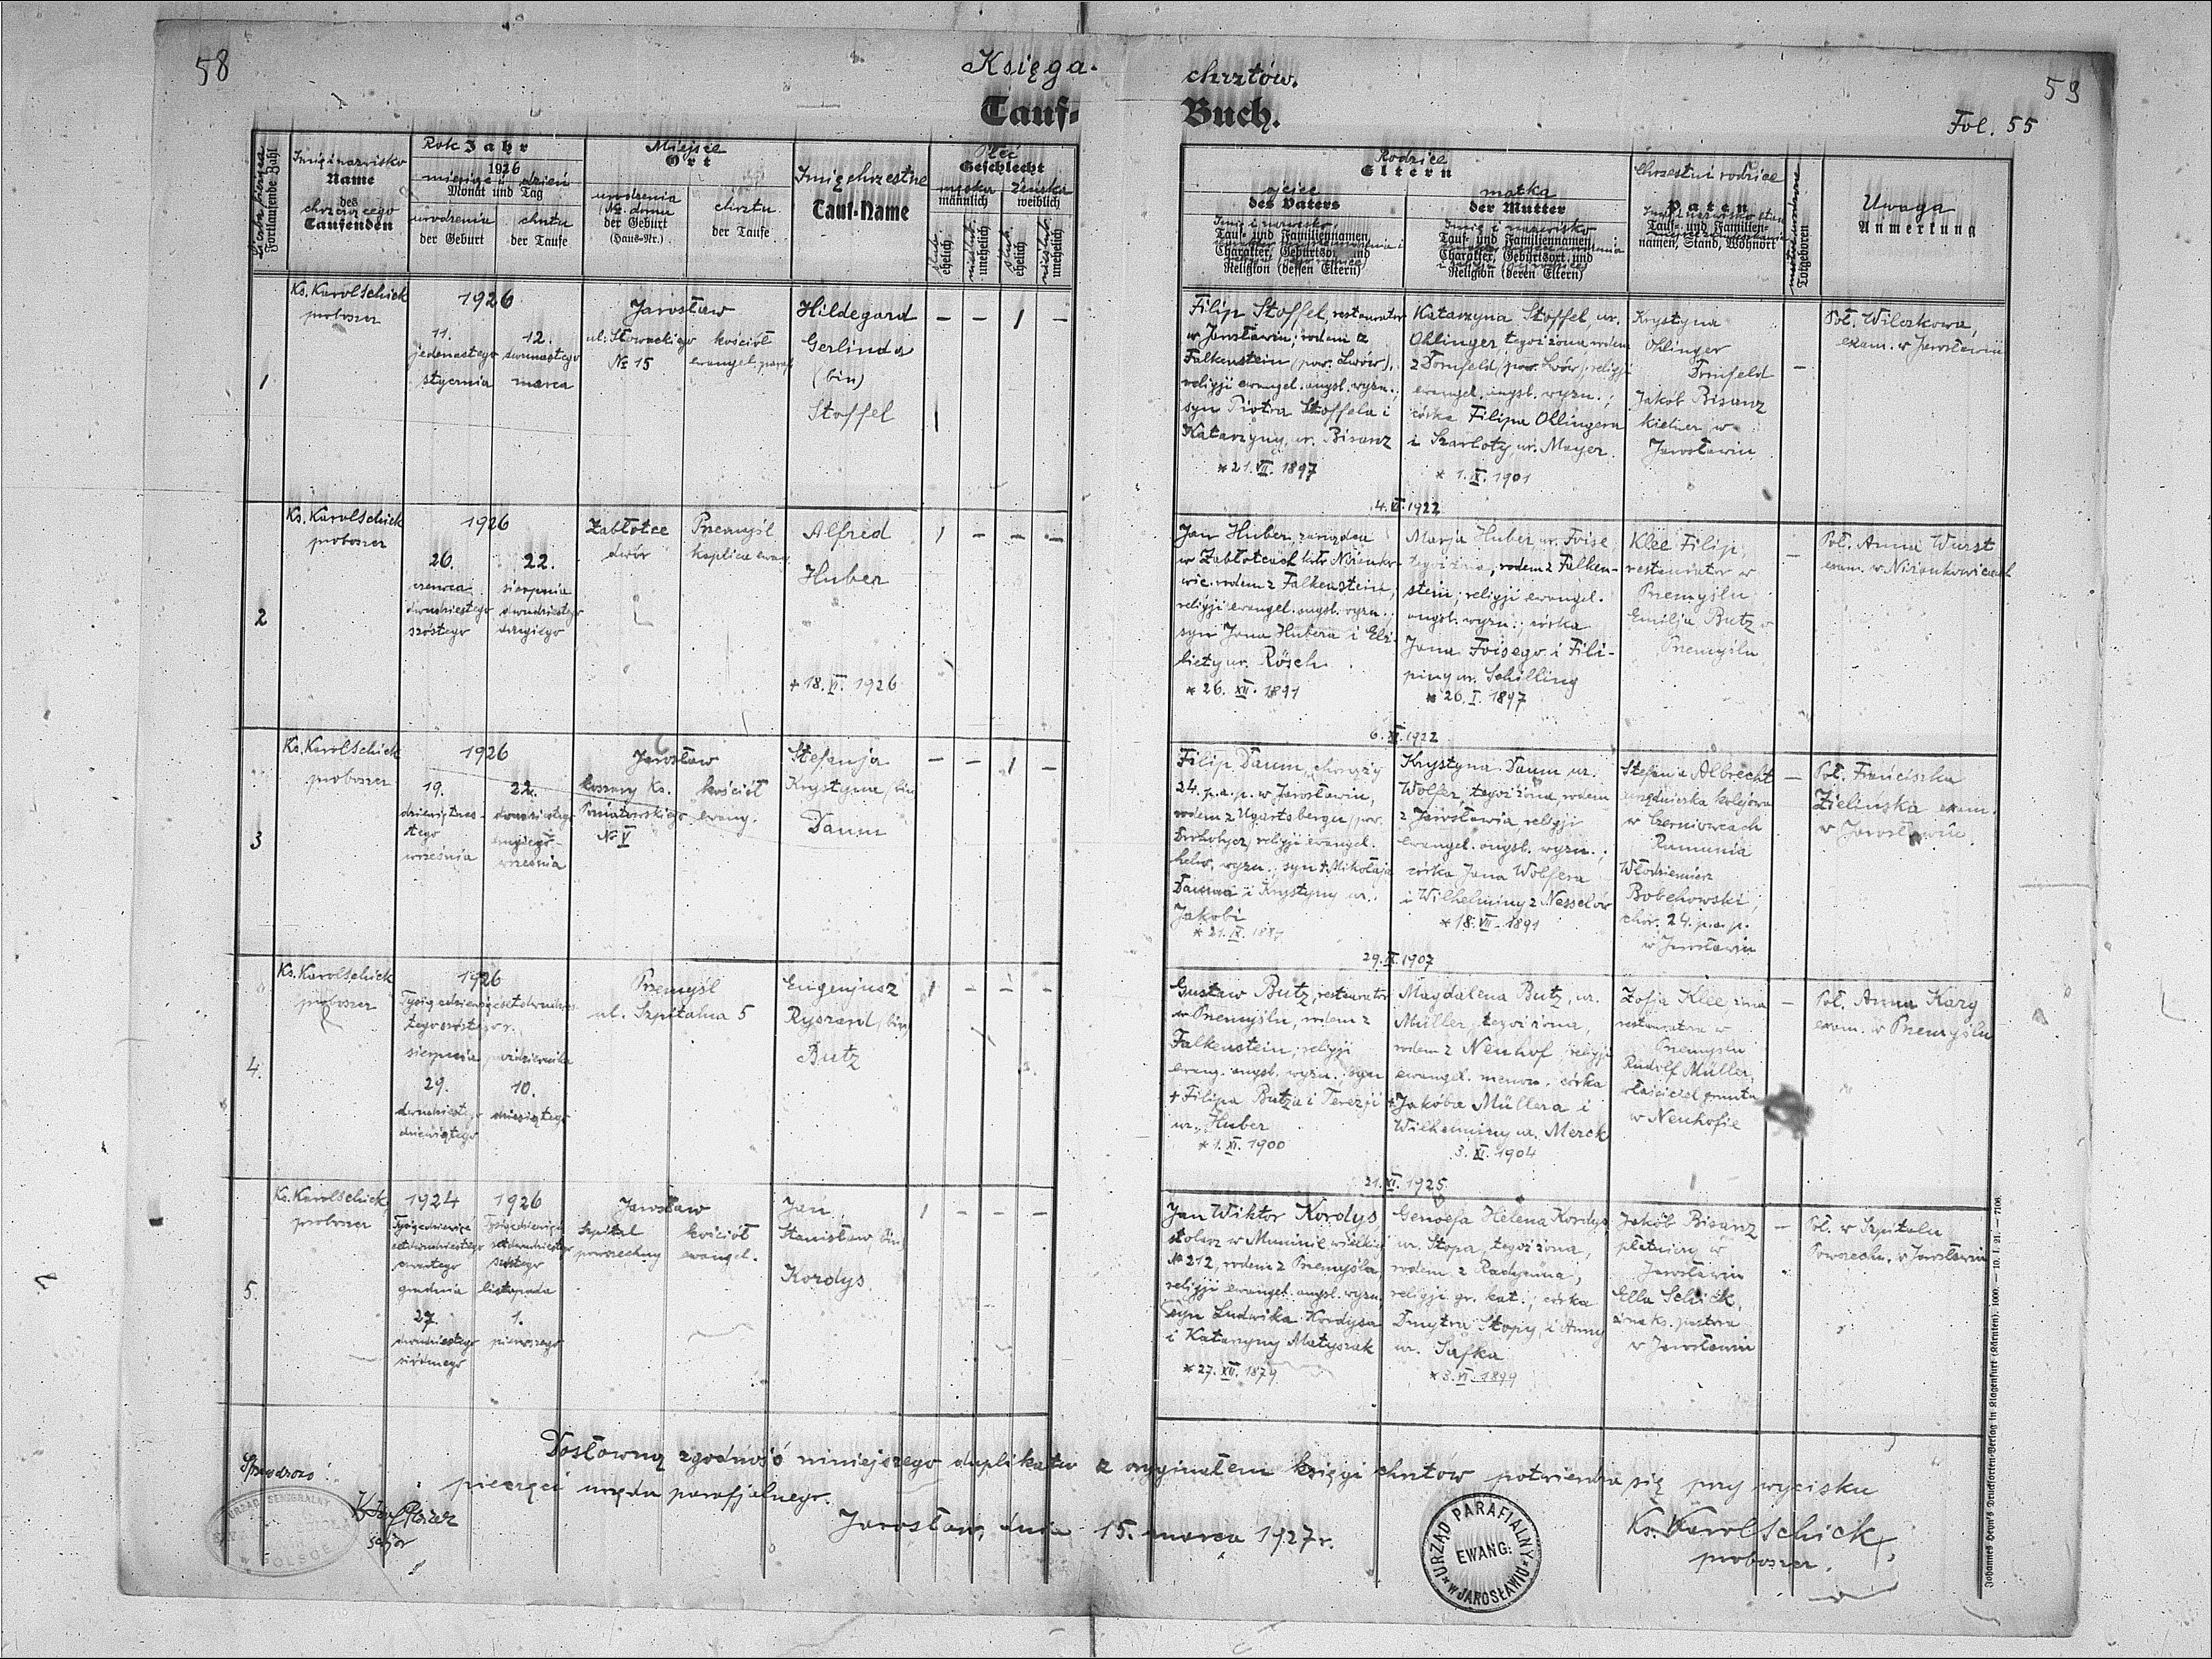 58
Księga
chrztów.
59
Tauf-
Buch.
Fol. 55
Liczba bieżąca
Fortlaufende Zahl
Imię i nazwisko
Name
des
chrzczącego
Taufenden
Rok Jahr
1926
miesiąc i dzień
Monat und Tag
urodzenia
der Geburt
chrztu
der Taufe
Miejsce
Ort
urodzenia
№ domu
der Geburt
(Haus-Nr.)
chrztu
der Taufe
Imię chrzestne
Tauf-Name
Płeć
Geschlecht
męska
männlich
żeńska
weiblich
ślub.
ehelich
nieślub.
unehelich
ślub.
ehelich
nieślub.
unehelich
Rodzice
Eltern
ojciec
des Vaters
Imię i nazwisko
Tauf- und Familiennamen,
Charakter, Geburtsort und
Religion (dessen Eltern)
matka
der Mutter
Imię i nazwisko
Tauf- und Familiennamen,
Charakter, Geburtsort und
Religion (deren Eltern)
Chrzestni rodzice
Paten
Tauf- und Familien-
namen, Stand, Wohnort
Totgeboren
Uwaga
Anmerkung
1
Ks. Karol Schick
proboszcz
1926
11.
jedenastego
stycznia
12.
dwunastego
marca
Jarosław
ul. Słowackiego
№ 15
kościół
ewangel. paraf.
Hildegard
Gerlinda
(bin)
Stoffel
— — 1 —
Filip Stoffel, restaurator
w Jarosławiu; rodem z
Falkenstein (pow. Lwów),
religji ewangel. augsb. wyzn.;
syn Piotra Stoffela i
Katarzyny, ur. Bisanz
* 21. VII. 1897
Katarzyna Stoffel, ur.
Ohlinger tegoż żona rodem
z Dornfeld (pow. Lwów), religji
ewangel. augsb. wyzn.;
córka Filipa Ohlingera
i Szarloty, ur. Mayer.
* 1. IX. 1901
Krystyna
Ohlinger
Dornfeld
Jakób Bisanz
kielner w
Jarosławiu
—
Poł. Wilczkowa,
exam. w Jarosławiu
2
Ks. Karol Schick
proboszcz
1926
26.
czerwca
dwudziestego
szóstego
22.
sierpnia
dwudziestego
drugiego
Zabłotce
dwór
Przemyśl
kaplica ewan.
Alfred
Huber
+ 18. VI. 1926
1 — — —
4. VI. 1922
Jan Huber, zarządca
w Zabłotcach koło Niżanko-
wic, rodem z Falkenstein,
religji ewangel. augsb. wyzn.;
syn Jana Hubera i Elż-
biety ur. Rösch
* 26. XII. 1891
Marja Huber, ur. Foise
tegoż żona, rodem z Falken-
stein; religji ewangel.
augsb. wyzn.; córka
Jana Foisego i Fili-
piny ur. Schilling
* 26. I. 1897
Klee Filip,
restaurator w
Przemyślu
Emilja Butz w
Przemyślu
—
Poł. Anna Wurst
exam. w Niżankowicach
3
Ks. Karol Schick
proboszcz
1926
19.
dziewiętnas-
tego
września
22.
dwudziestego
drugiego
września
Jarosław
koszary Ks.
Poniatowskiego
№ V
kościół
ewang.
Stefanja
Krystyna (bin)
Daum
— — 1 —
6. XI. 1922
Filip Daum, chorąży
24. p.a.p. w Jarosławiu,
rodem z Ugartsbergu (pow.
Drohobycz) religji ewangel.
helw. wyzn.; syn + Mikołaja
Dauma i Krystyny ur.
Jakobi
* 21. IX. 1887
Krystyna Daum ur.
Wolfer, tegoż żona, rodem
z Jarosławia, religji
ewangel. augsb. wyzn.;
córka Jana Wolfera
i Wilhelminy z Nesselów
* 18. VII. 1891
Stefania Albrecht
urzędniczka kolejowa
w Czerniowcach
Rumunia
Włodzimierz
Bobechowski,
chor. 24. p.a.p.
w Jarosławiu
—
Poł. Franciszka
Zielińska exam.
w Jarosławiu
4.
Ks. Karol Schick
proboszcz
1926
sierpnia
29.
dwudziestego
dziewiątego
października
10.
dziesiątego
Przemyśl
ul. Szpitalna 5
Eugenjusz
Ryszard (bin)
Butz
1 — — —
29. IX. 1907
Gustaw Butz, restaurator
w Przemyślu, rodem z
Falkenstein; religji
ewang. augsb. wyzn.; syn
+ Filipa Butza i Terezji
ur. Huber
* 1. XI. 1900
Magdalena Butz, ur.
Müller, tegoż żona,
rodem z Neuhof, religji
ewangel. menon. córka
+ Jakóba Müllera i
Wilhelminy ur. Merck
3. XI. 1904
Zofja Klee, żona
restauratora w
Przemyślu
Rudolf Müller,
właściciel gruntu
w Neuhofie
—
Poł. Anna Karg
exam. w Przemyślu
5.
Ks. Karol Schick
proboszcz
1924
Tysiącdziewięć
setdwudziestego
czwartego
grudnia
27.
dwudziestego
siódmego
1926
Tysiącdziewięć
setdwudziestego
szóstego
listopada
1.
pierwszego
Jarosław
Szpital
powszechny
kościół
ewangel.
Jan
Stanisław (bin)
Kordys
1 — — —
21. XI. 1925
Jan Wiktor Kordys
stolarz w Muninie wielkiej
№ 212, rodem z Przemyśla,
religji ewangel. augsb. wyzn.
syn Ludwika Kordysa
i Katarzyny Matyszak
* 27. XII. 1879
Genoefa Helena Kordys
ur. Stopa, tegoż żona,
rodem z Radymna,
religji gr. kat.; córka
Dmytra Stopy i Anny
ur. Safka
* 3. VI. 1899
Jakób Bisanz
płatniczy w
Jarosławiu
Ella Schick,
żona ks. pastora
w Jarosławiu
—
Poł. w Szpitalu
Powszech. w Jarosławiu
Dosłowną zgodność niniejszego duplikatu z oryginałem księgi chrztów potwierdza się przy wycisku
pieczęci urzędu parafjalnego.
Jarosław, dnia 15. marca 1927 r.
Ks. Karol Schick,
proboszcz.
Sprawdzono:
URZĄD PARAFIALNY
EWANG.
W JAROSŁAWIU
URZĄD SENIORALNY
W POLSCE
Johannes Heyn's Drucksorten-Verlag in Klagenfurt (Kärnten). 1000. — 10. I. 21. — 7106.